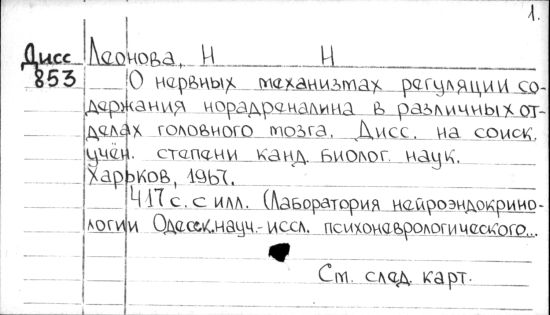 1.
Дисс Леонова, Н Н
853 О нервных механизмах регуляции со-
держания норадреналина в различных от-
делах головного мозга. Дисс. на соиск.
учён. степени канд. биолог. наук.
Харьков, 1967.
417 с. с илл. (Лаборатория нейроэндокрино-
логии Одесск. науч.-иссл. психоневрологического...
См. след. карт.